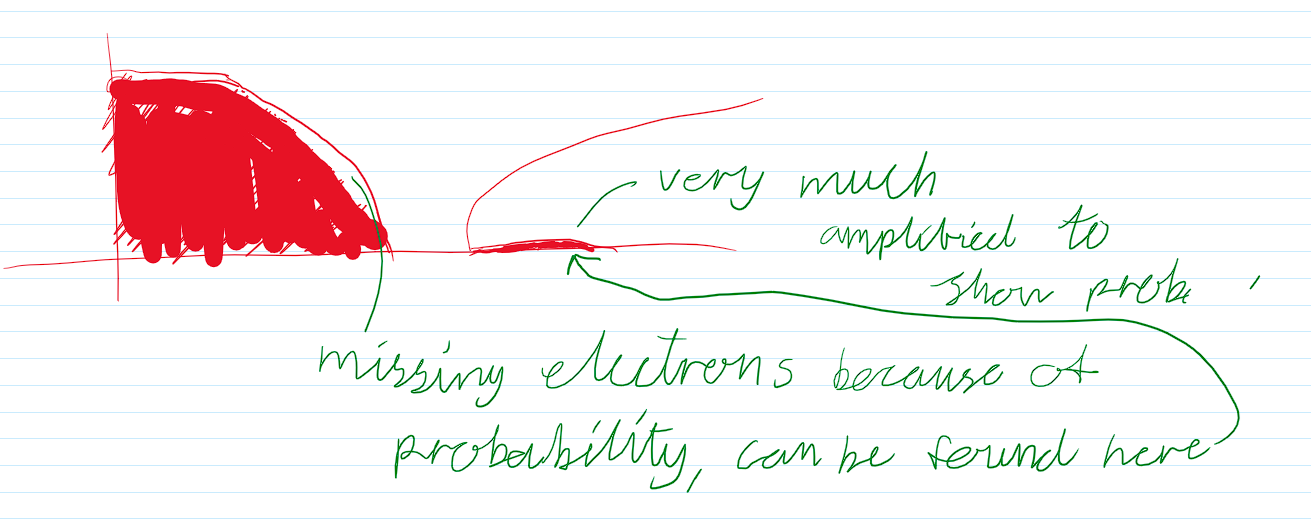 very much
amplified to
show prob
missing electrons because of
probability, can be found here